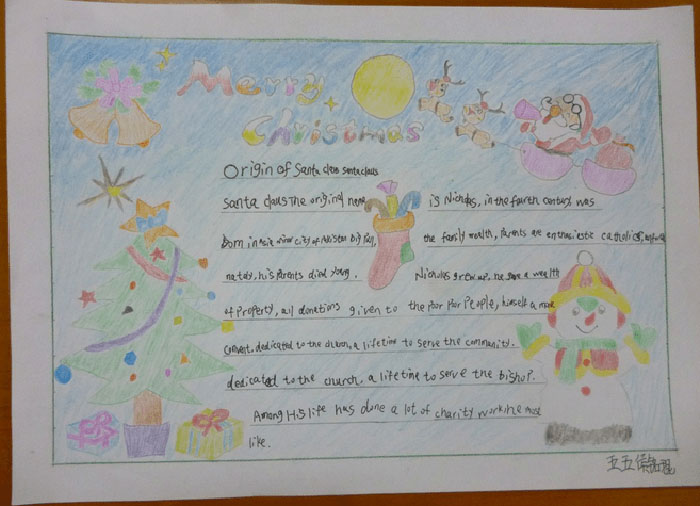 Merry
Christmas
Origin of Santa claus santa claus
Santa claus The original name is Nicholas, in the fourth century was
born in Asia minor city of the family wealth, Parents are enthusiastic catholics,
nately, his parents died young. Nicholas grew up, he gave a wealth
of Property, all donations given to the poor Por People, himself a
convert, dedicated to the church, a lifetime to serve the community.
dedicated to the church, a lifetime to serve the bishop.
Among His life has done a lot of charity work, most
like.
五五